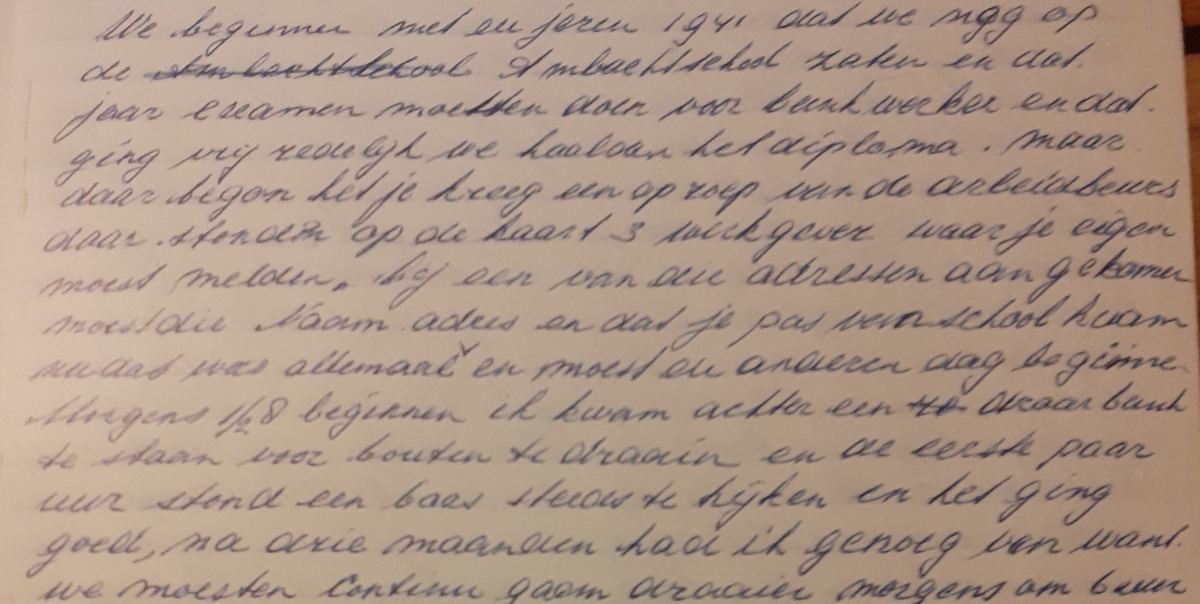 We beginnen met en jeren 1941 dat we nog op
de Ambachtschool Ambachtschool zaten en dat
jaar examen moesten doen voor bankwerker en dat
ging vrij redelijk we haalden het diploma. Maar
daar begon het je kreeg een oproep van de arbeidbeurs
daar stonden op de kaart 3 werkgever waar je eigen
moest melden, bij een van die adressen aangekomen
moest die Naam adres en dat je pas van school kwam
nu dat was allemaal en moest de anderen dag beginne
Morgens 1/2 8 beginnen ik kwam achter een draaibank
te staan voor bouten te draaien en de eerste paar
uur stond een baas steeds te kijken en het ging
goed, na drie maanden had ik genoeg van want
we moesten continu gaan draaien morgens om 6 uur